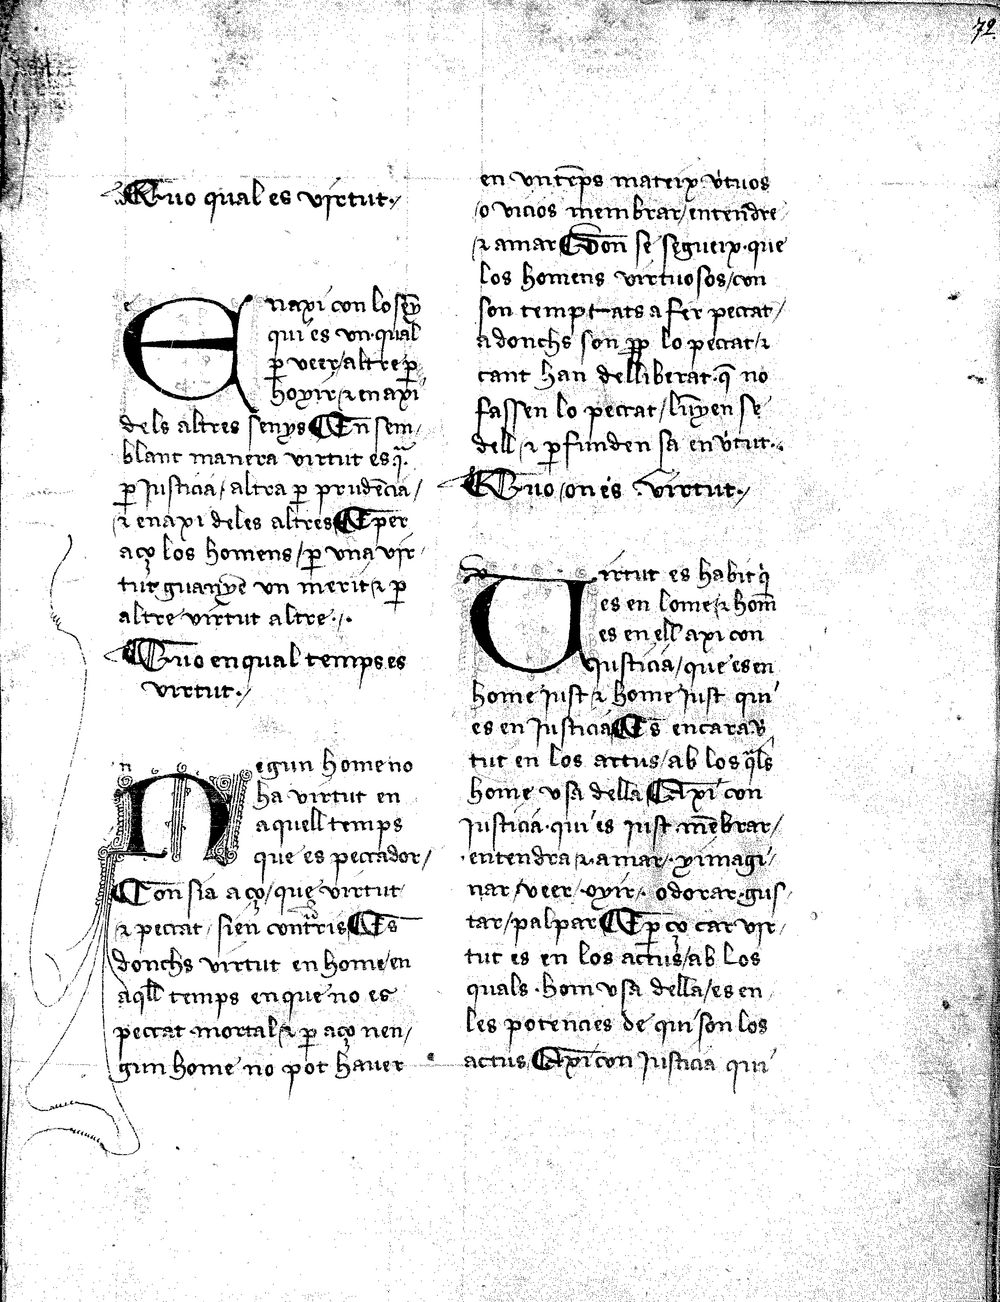 72
Quo qual es virtut·/
Enaxi con lo sẽy
qui es vn·qual
ꝑ veer/altre ꝑ
hoyir/⁊ enaxi
dels altres senys En sem/
blant manera virtut es q̃·
ꝑ Justicia/altra ꝑ prudẽcia/
⁊ enaxi deles altres E per
aço los homens/ꝑ vna vir/
tut guanyẽ vn merit/⁊ ꝑ
altre virtut altre·/·
Quo en qual temps es
virtut·/
Negun home no
ha virtut en
aquell temps
que es peccador/
Con sia aço/que virtut
⁊ peccat/sien contr̃is Es
donchs virtut en home/en
aq̃ll temps en que no es
peccat·mortal/⁊ ꝑ aço nen/
gun home no pot hauer
en vn tẽps mateix v̉tuos
/o vicios membrar/entendre
/⁊ amar Don se segueix·que
los homens virtuosos/con
son temptats a fer peccat/
adonchs son ꝓp lo peccat/⁊
cant han delliberat·q̃ no
fassen lo peccat/lũyen se
dell/⁊ ꝑfunden sa en v̉tut·/
Quo/on es·virtut·/
Virtut es habit q̉
es en lome/⁊ hom̃
es en ell axi con
Justicia/que es en
home Just/⁊ home Just qui
es en Justicia Es encara v̉
tut en los actus/ab los q̃ls
home vsa della Axi con
Justicia·qui es Just·mẽbrar/
·entendra/⁊ amar/·ximagi/
nar/veer·oyir/·odorar·gus/
tar/palpar E ꝑ ço car vir/
tut es en los actus/ab los
quals·hom vsa della/es en
les potencies de qui son los
actus Axi con Justicia qui